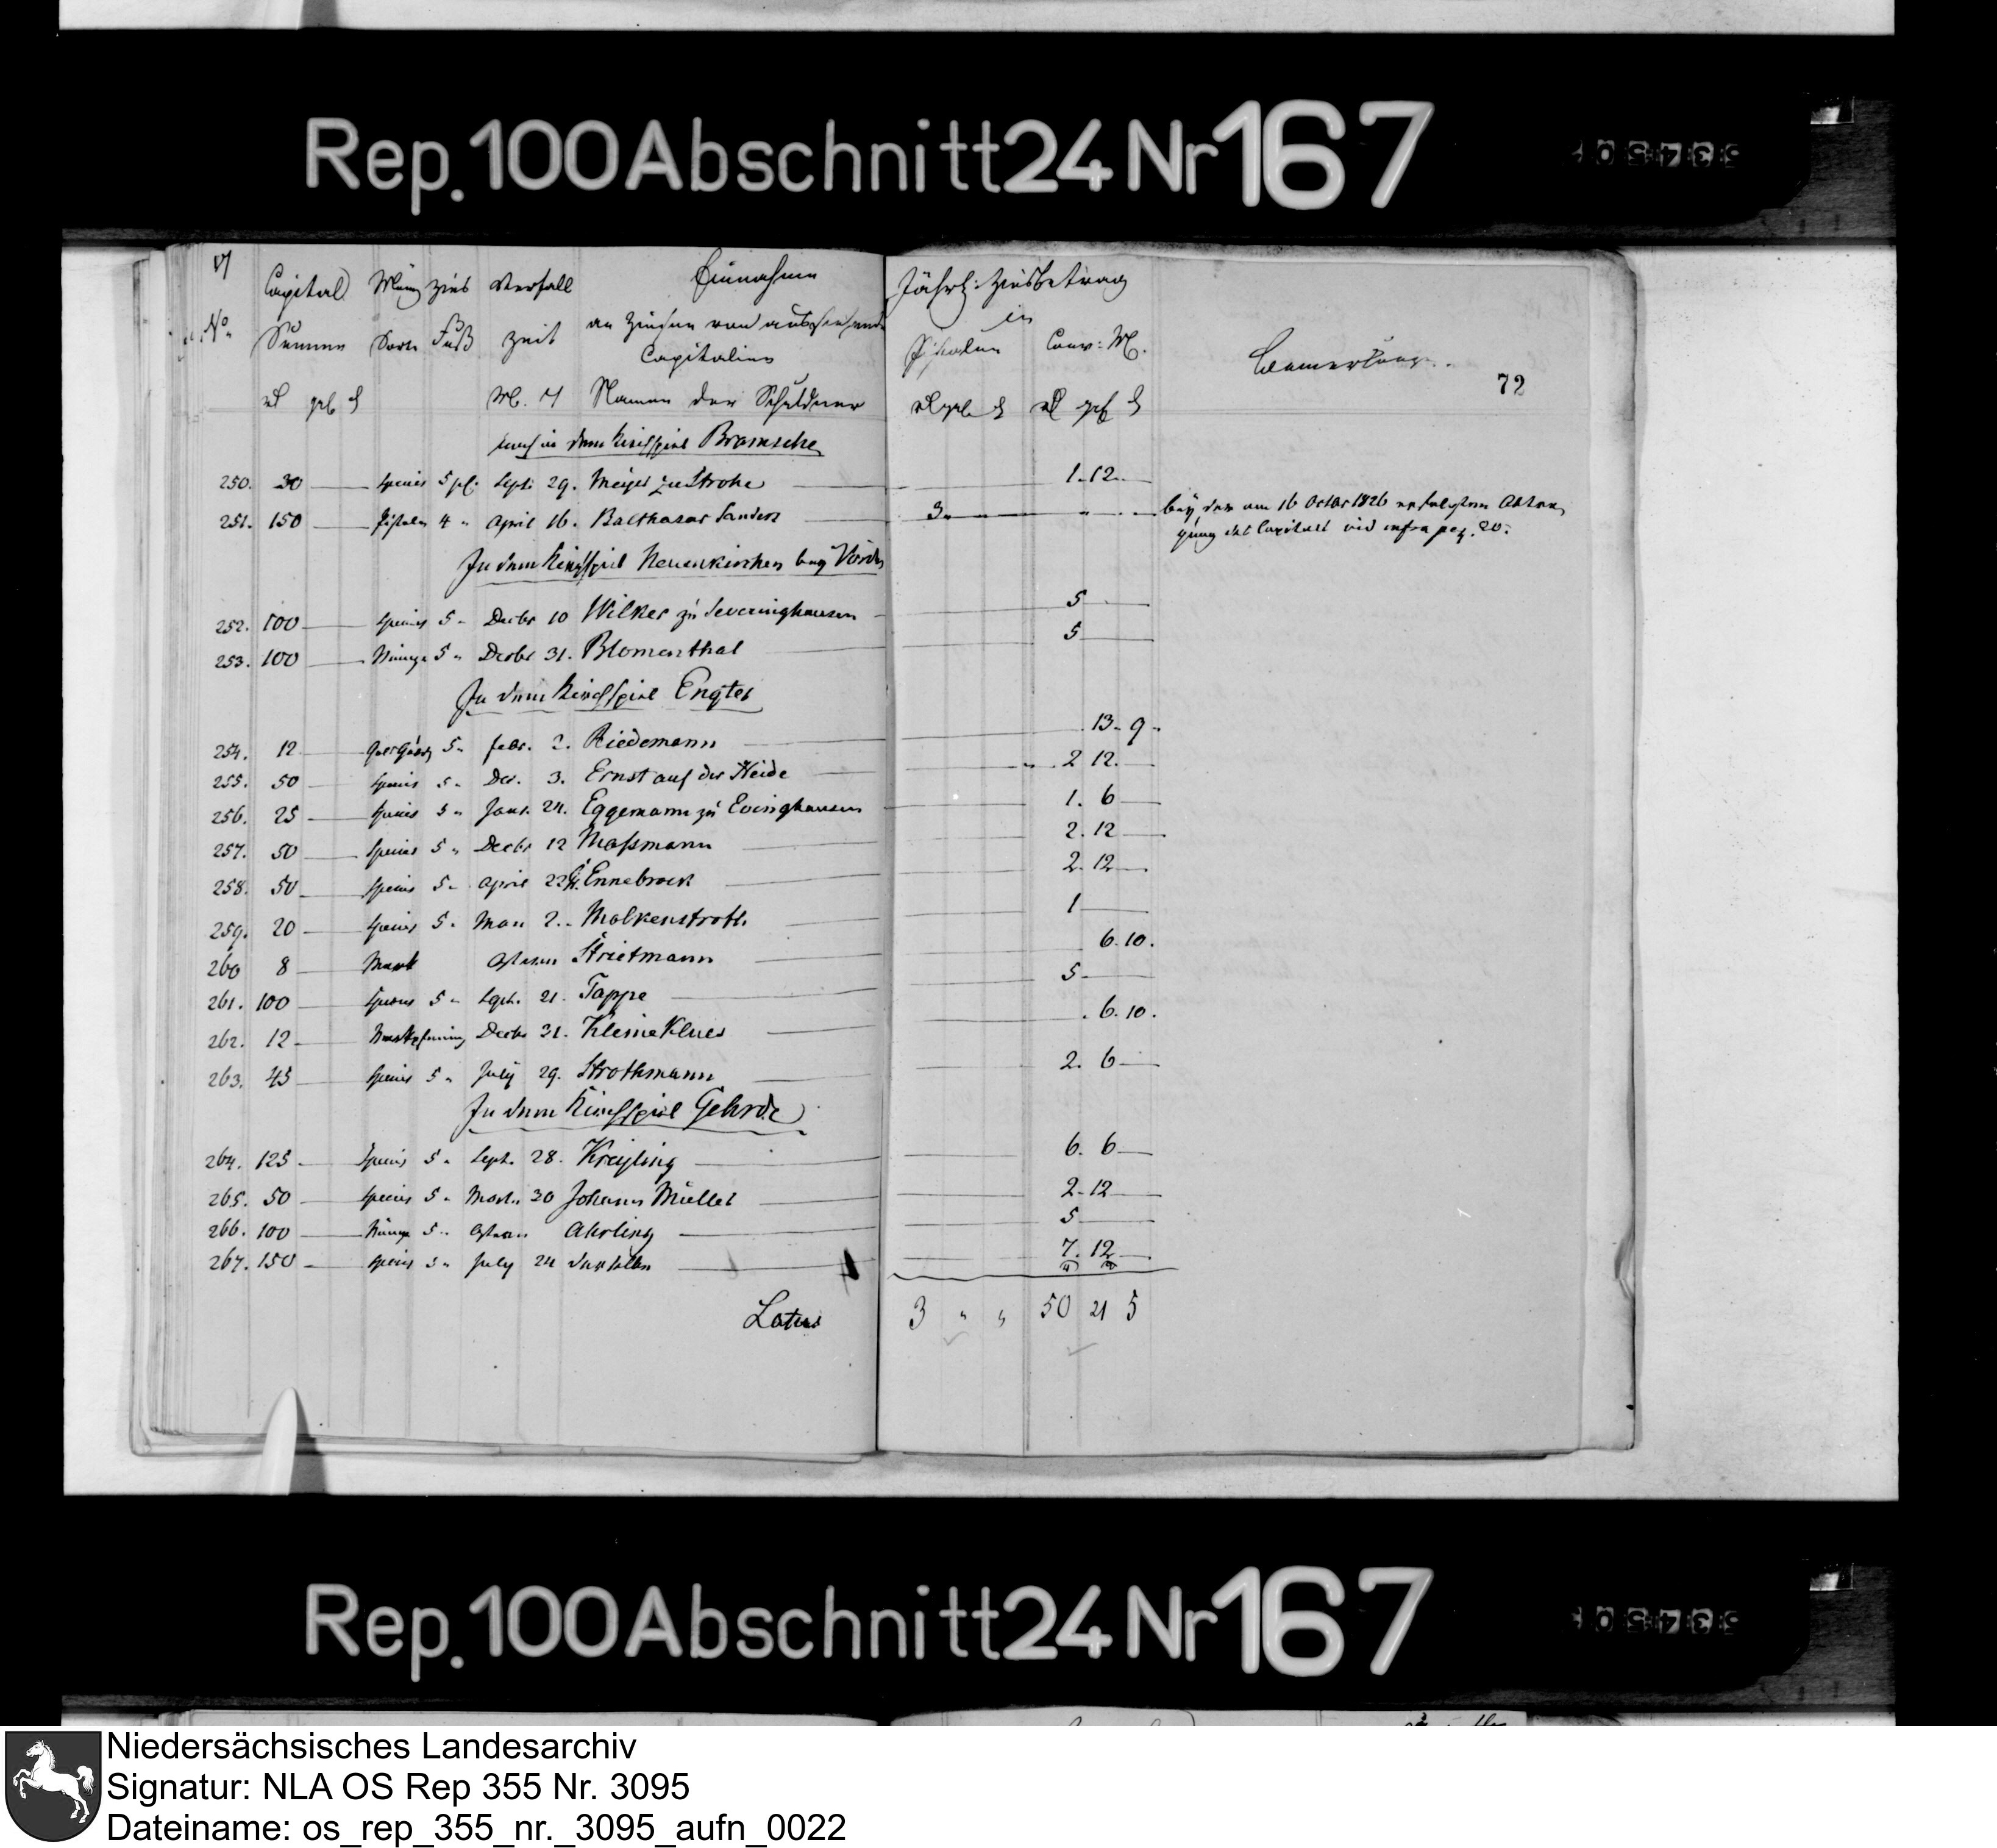 Rep. 100 Abschnitt 24 Nr 167
17
Capital Münz Zins Verfall Einnahme Jährl: Zinsbetrag
No. Summe Sorte Fuß Zeit an Zinsen von ausstehenden in
Capitalien Pistolen Conv: M. Bemerkungen
72
M. T Namen der Schuldner
noch in dem Kirchspiel Bramsche
250. 30 Species 5 pC. Sept. 29. Meyer zu Strohe 1. 12.
251. 150 Pistolen 4 " April 16. Balthasar Sanders 3 " " bey der am 16 Octbr 1826 erfolgten Abtra,
gung des Capitals vid infra pag. 20.
In dem Kirchspiel Neuenkirchen bey Vörden
252. 100 Species 5 " Decbr 10 Wilker zu Severinghausen 5
253. 100 Münze 5 " Decbr 31. Blomenthal 5
In dem Kirchspiel Engter
254. 12 5 " Febr. 2. Riedemann 13. 9.
255. 50 Species 5 " Dec. 3. Ernst auf der Heide 2 12.
256. 25 Species 5 " Janr. 24. Eggemann zu Evinghausen 1. 6
257. 50 Species 5 " Decbr 12 Maßmann 2. 12
258. 50 Species 5 " April 22 Ennebrock 2. 12
259. 20 Species 5 " May 2. Malkenstroth 1
260 8 Mark Ostern Strietmann 6. 10.
261. 100 Species 5 " Sept. 21. Tappe 5
262. 12 Markpfenning Decbr 31. Kleine Klues 6. 10.
263. 45 Species 5 " July 29. Strothmann 2. 6
In dem Kirchspiel Gehrde
264. 125 Species 5 " Sept. 28. Kreyling 6. 6
265. 50 Species 5 " 30 Johann Müller 2. 12
266. 100 Münze 5 " Ostern Ahrling 5
267. 150 Species 5 " July 24 derselbe 7. 12
Latus 3 " " 50 21 5
Rep. 100 Abschnitt 24 Nr 167
Niedersächsisches Landesarchiv
Signatur: NLA OS Rep 355 Nr. 3095
Dateiname: os_rep_355_nr._3095_aufn_0022